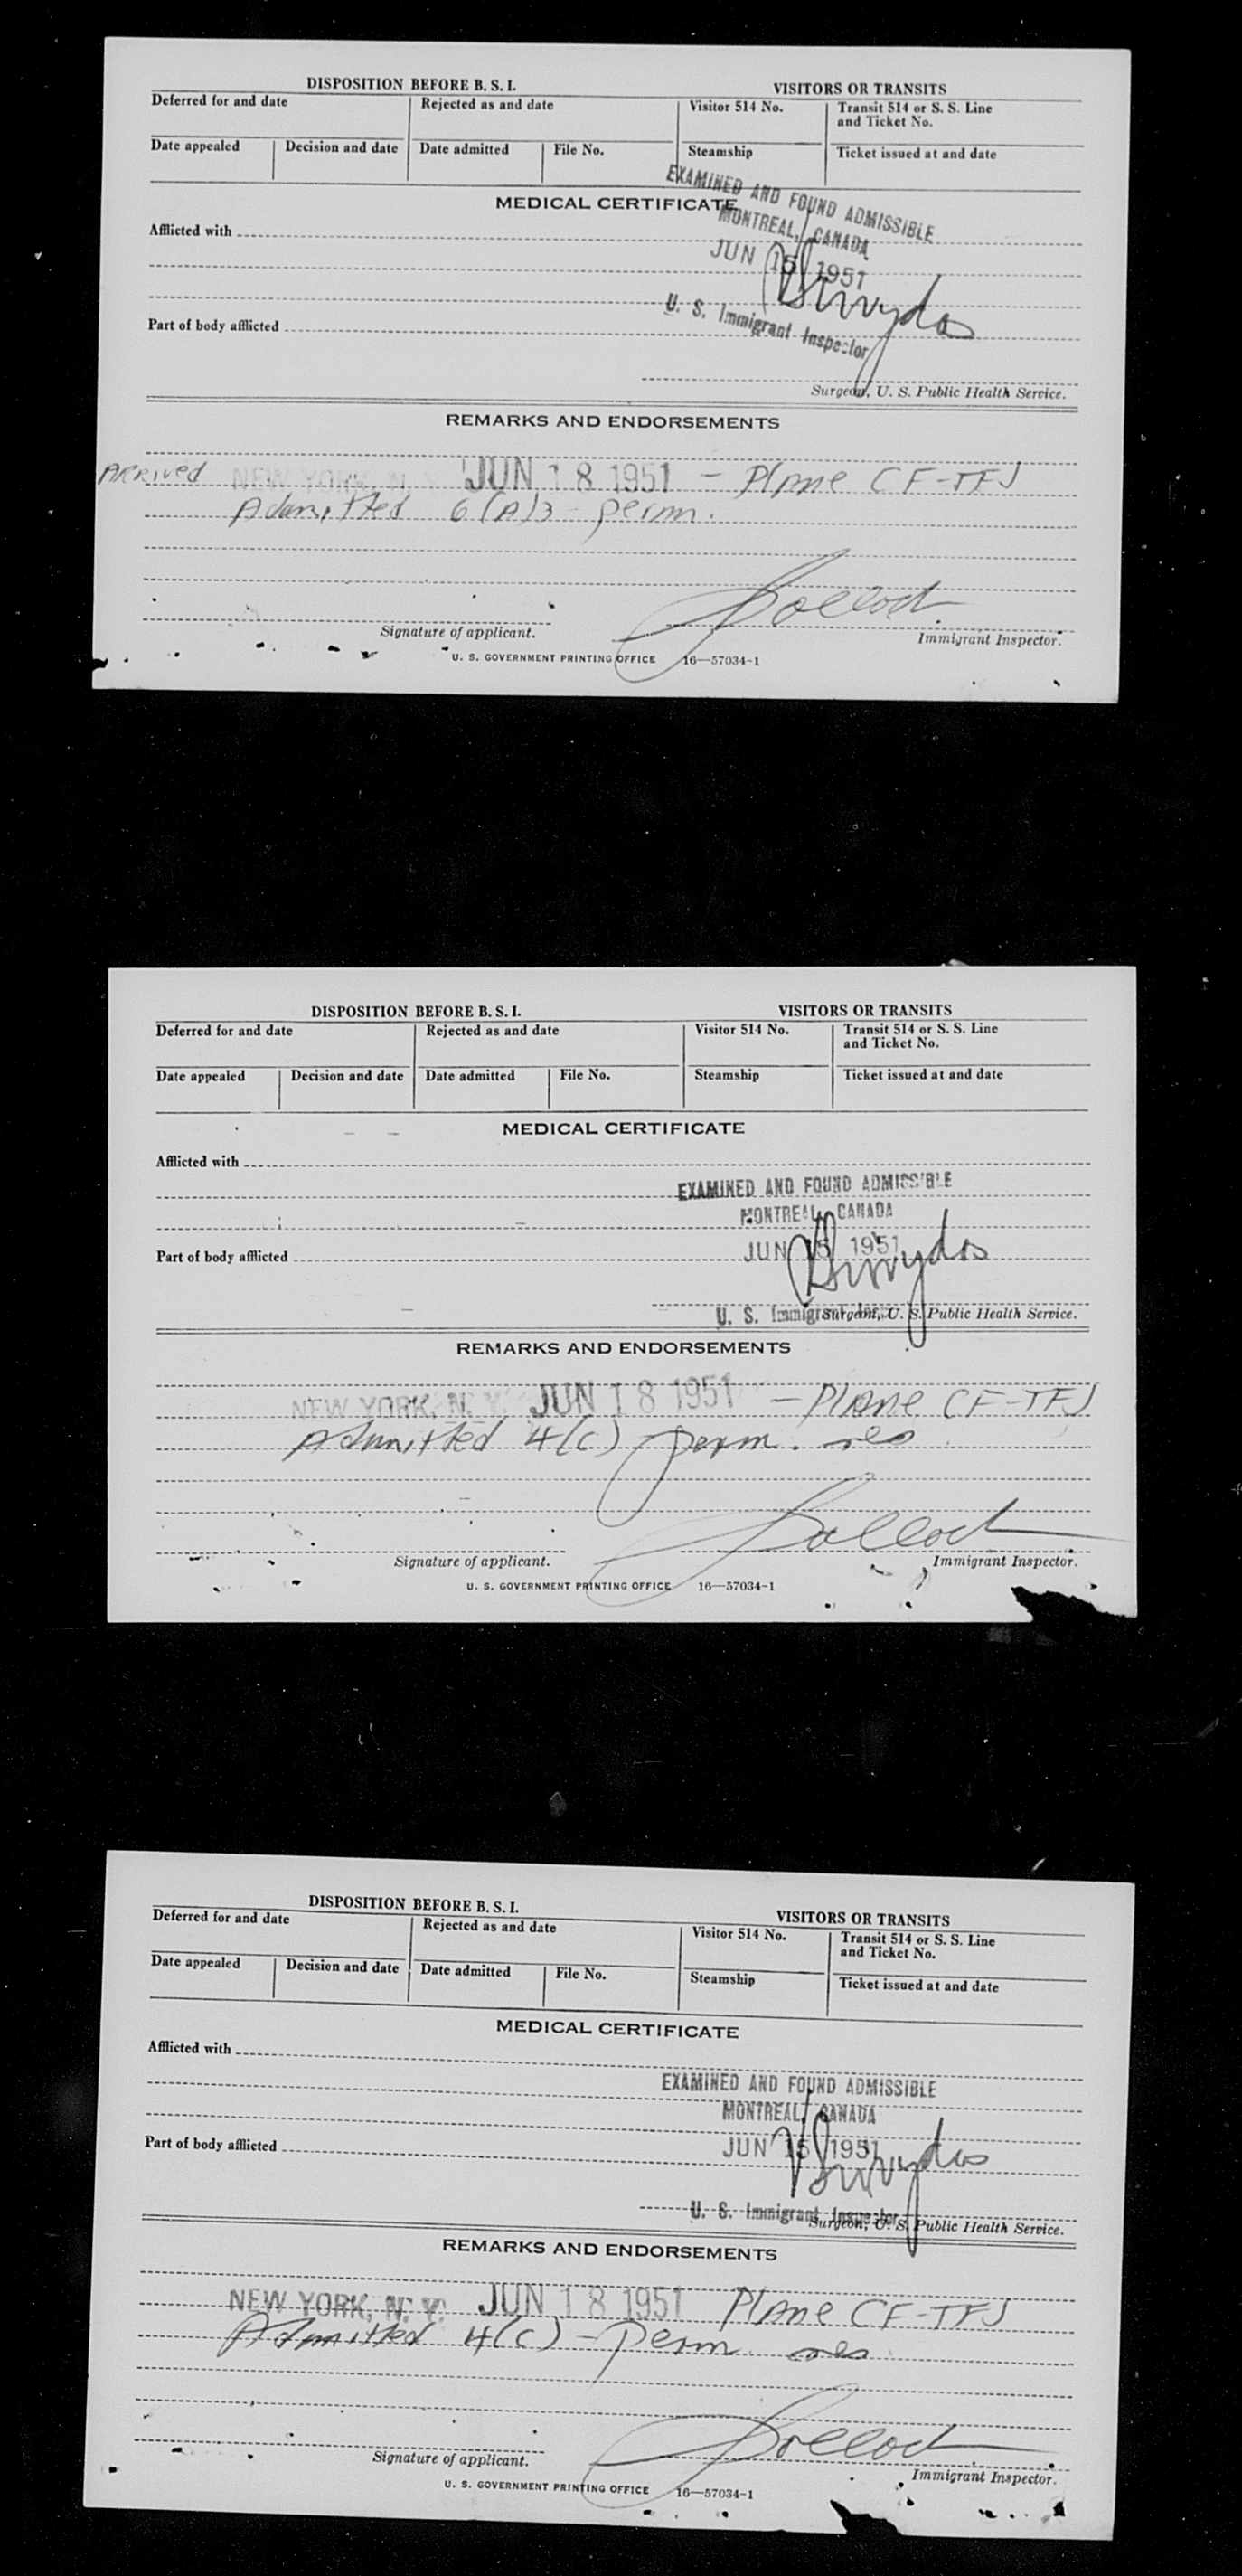 DISPOSITION BEFORE B. S. I. VISITORS OR TRANSITS
Deferred for and date Rejected as and date Visitor 514 No. Transit 514 or S. S. Line
and Ticket No.
Date appealed Decision and date Date admitted File No. Steamship Ticket issued at and date
EXAMINED AND FOUND ADMISSIBLE
MEDICAL CERTIFICATE
MONTREAL, CANADA
Afflicted with
JUN 15 1951
U. S. Immigrant Inspector
Part of body afflicted
Surgeon, U. S. Public Health Service.
REMARKS AND ENDORSEMENTS
Arrived NEW YORK, N. Y. JUN 18 1951 - Plane CF-TFJ
Admitted 6(A)3 - perm.
Signature of applicant. Immigrant Inspector.
U. S. GOVERNMENT PRINTING OFFICE 16—57034-1
DISPOSITION BEFORE B. S. I. VISITORS OR TRANSITS
Deferred for and date Rejected as and date Visitor 514 No. Transit 514 or S. S. Line
and Ticket No.
Date appealed Decision and date Date admitted File No. Steamship Ticket issued at and date
MEDICAL CERTIFICATE
Afflicted with
EXAMINED AND FOUND ADMISSIBLE
MONTREAL, CANADA
JUN 15 1951
Part of body afflicted
U. S. Immigrant Surgeon, U. S. Public Health Service.
REMARKS AND ENDORSEMENTS
NEW YORK, N. Y. JUN 18 1951 - Plane CF-TFJ
Admitted 4(c) perm. res
Signature of applicant. Immigrant Inspector.
U. S. GOVERNMENT PRINTING OFFICE 16—57034-1
DISPOSITION BEFORE B. S. I. VISITORS OR TRANSITS
Deferred for and date Rejected as and date Visitor 514 No. Transit 514 or S. S. Line
and Ticket No.
Date appealed Decision and date Date admitted File No. Steamship Ticket issued at and date
MEDICAL CERTIFICATE
Afflicted with
EXAMINED AND FOUND ADMISSIBLE
MONTREAL, CANADA
JUN 15 1951
Part of body afflicted
U. S. Immigrant Inspector
Surgeon, U. S. Public Health Service.
REMARKS AND ENDORSEMENTS
NEW YORK, N. Y. JUN 18 1951 Plane CF-TFJ
Admitted 4(c) - perm. res
Signature of applicant. Immigrant Inspector.
U. S. GOVERNMENT PRINTING OFFICE 16—57034-1